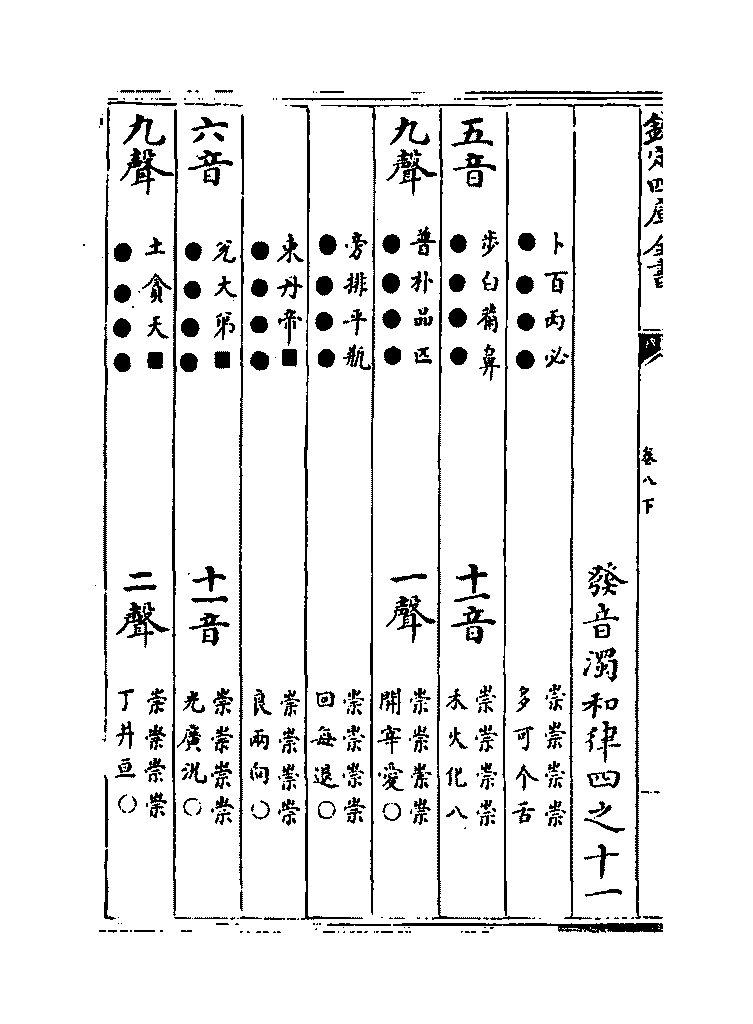 欽定四庫全書
卷八下
發音濁和律四之十一
卜百丙必
●●●●
崇崇崇崇
多可个舌
五音
步白葡鼻
●●●●
十一音
崇崇崇崇
禾火化八
九聲
普朴品匹
●●●●
一聲
崇崇崇崇
開宰愛○
旁排平瓶
●●●●
崇崇崇崇
回每退○
東丹帝■
●●●●
崇崇崇崇
良兩向○
六音
兌大弟■
●●●●
十一音
崇崇崇崇
光廣况○
九聲
土貪天■
●●●●
二聲
崇崇崇崇
丁井亘○